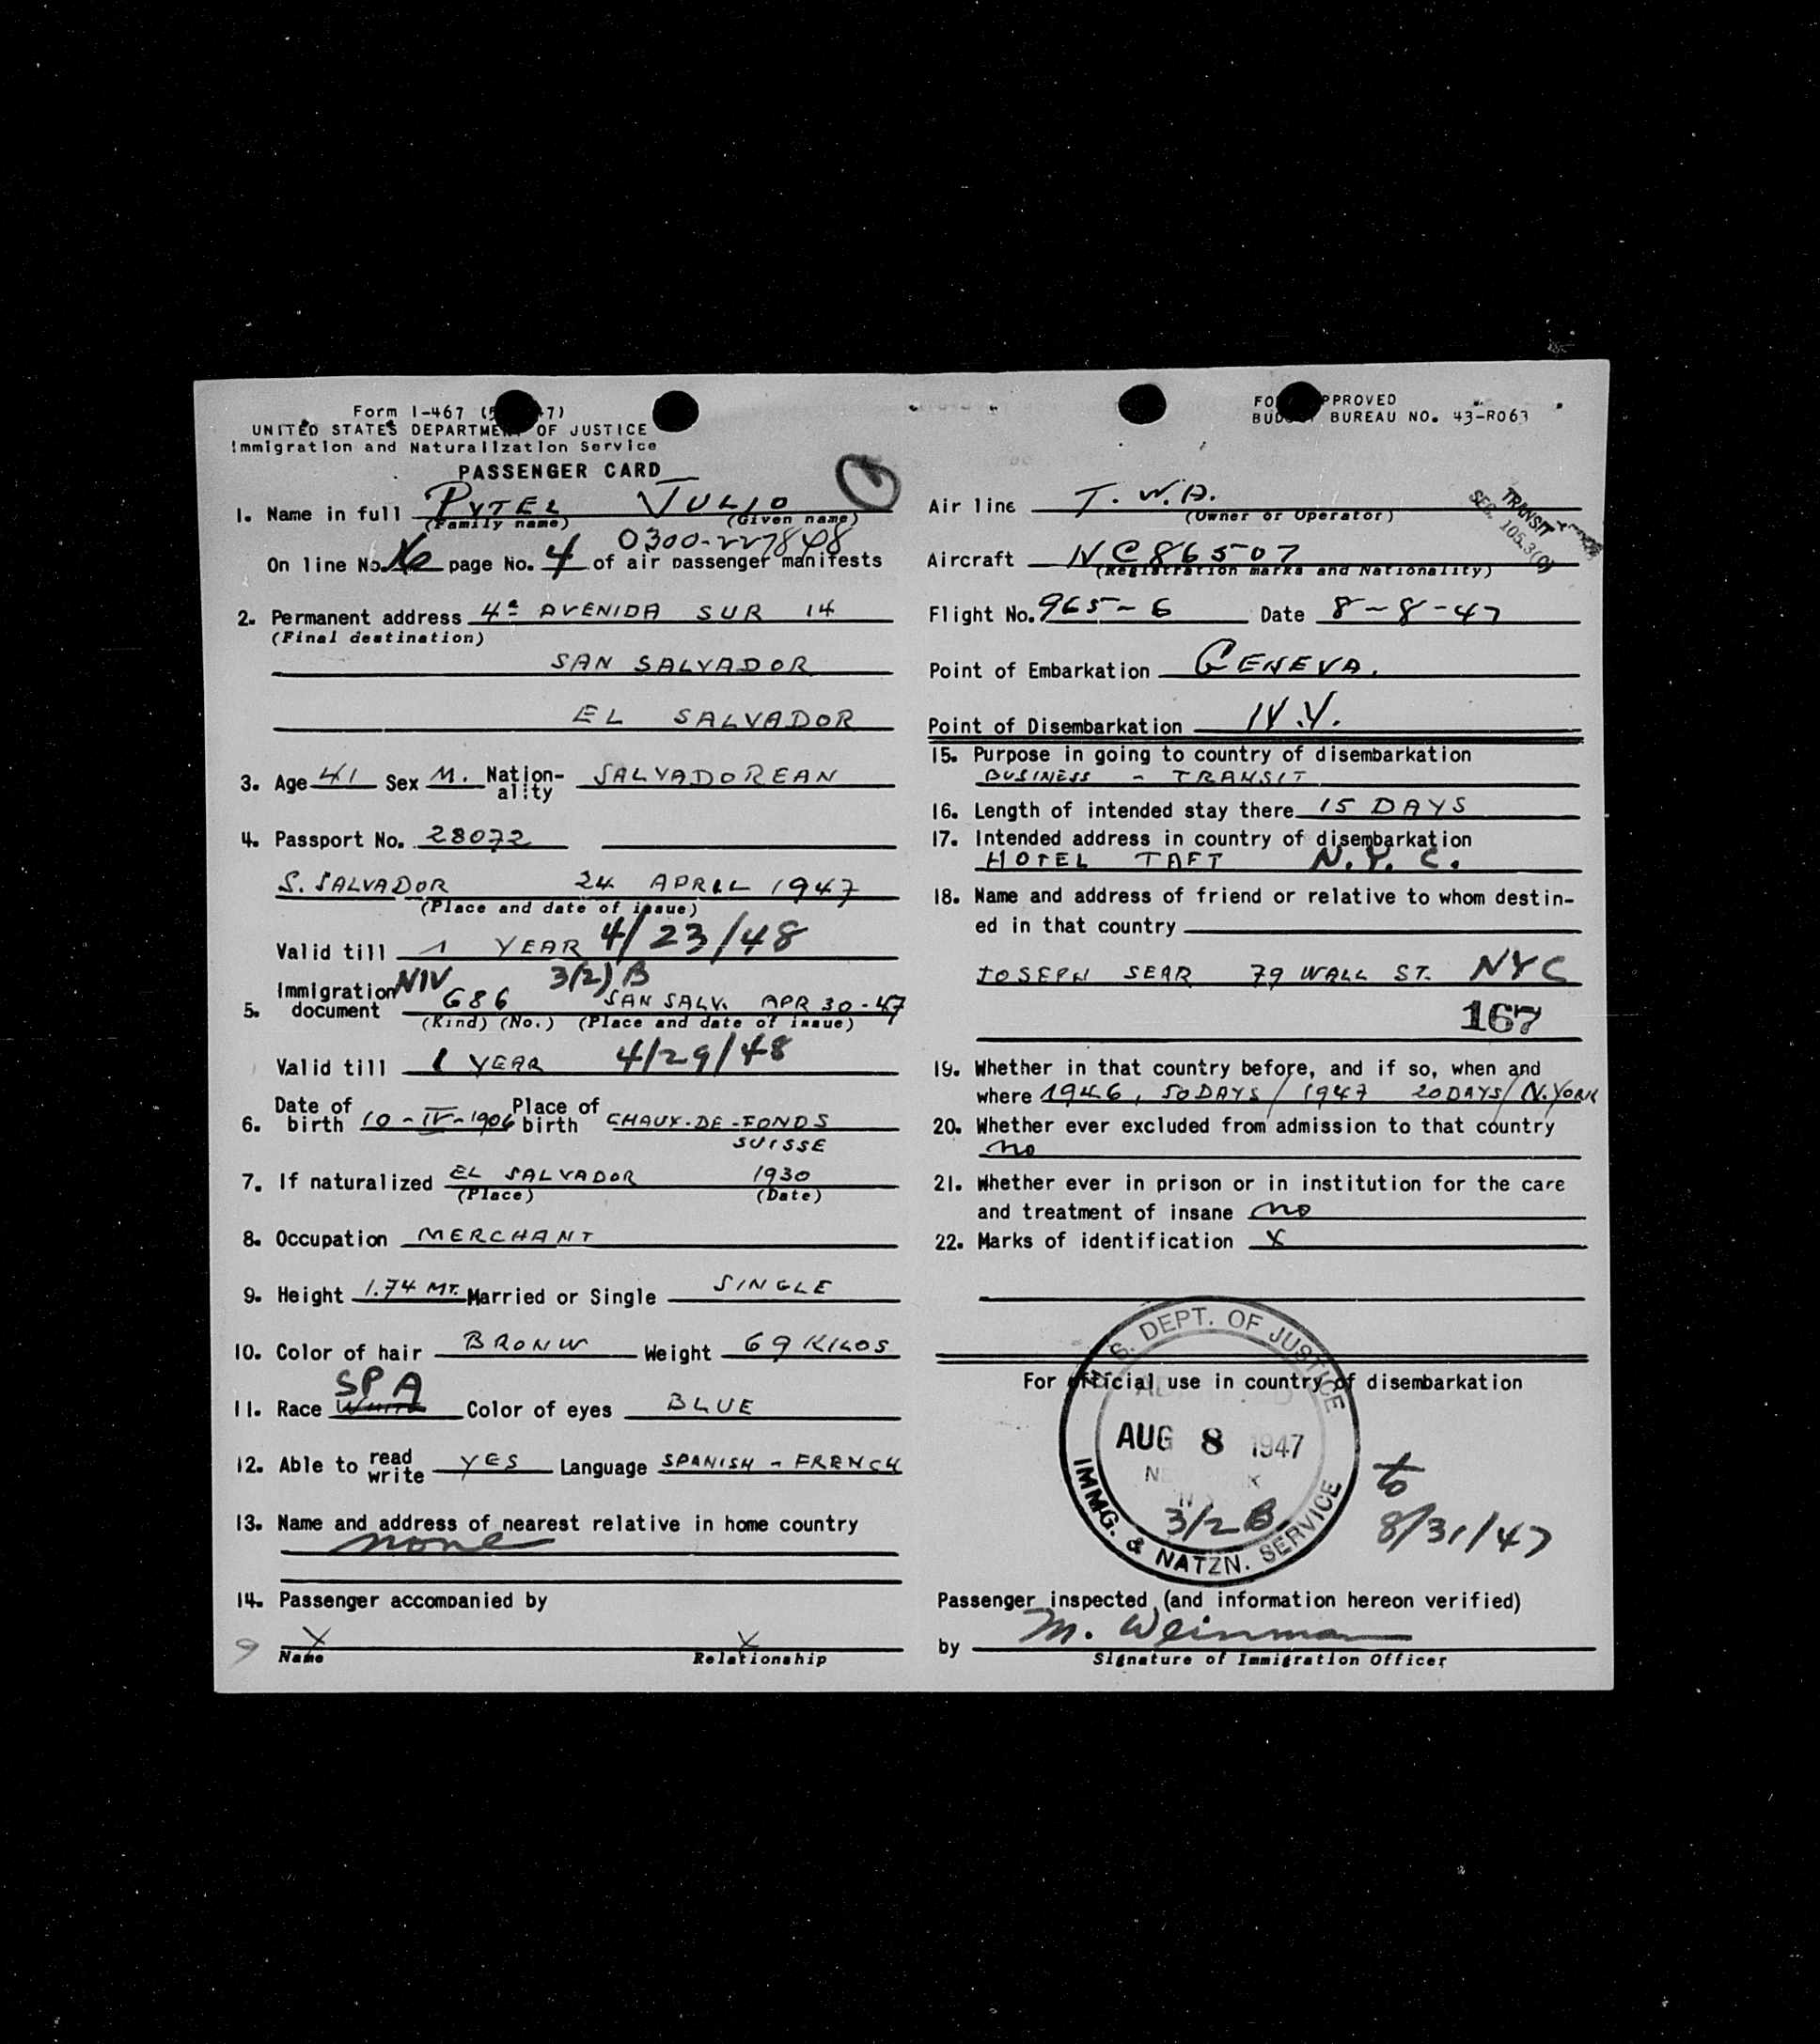 Form I-467 (7)
UNITED STATES DEPARTMENT OF JUSTICE
Immigration and Naturalization Service
PASSENGER CARD
1. Name in full PYTEL JULIO
(Family name) (Given name)
0300-227848
On line No. 16 page No. 4 of air passenger manifests
2. Permanent address 4ª AVENIDA SUR 14
(Final destination)
SAN SALVADOR
EL SALVADOR
3. Age 41 Sex M. Nation-ality SALVADOREAN
4. Passport No. 28072
S. SALVADOR 24 APRIL 1947
(Place and date of issue)
Valid till 1 YEAR 4/23/48
NIV 3(2) B
5. Immigration document 686 SAN SALV. APR 30-47
(Kind) (No.) (Place and date of issue)
Valid till 1 YEAR 4/29/48
6. Date of birth 10-IV-1906 Place of birth CHAUX-DE-FONDS
SUISSE
7. If naturalized EL SALVADOR 1930
(Place) (Date)
8. Occupation MERCHANT
9. Height 1.74 MT. Married or Single SINGLE
10. Color of hair BRONW Weight 69 KILOS
SPA
11. Race White Color of eyes BLUE
12. Able to read write YES Language SPANISH - FRENCH
13. Name and address of nearest relative in home country
none
14. Passenger accompanied by
X X
Name Relationship
9
FO PPROVED
BUD BUREAU NO. 43-R063
Air line T.W.A.
(Owner or Operator)
TRANSIT
SEC. 105.3(0)
Aircraft NC86507
(Registration marks and Nationality)
Flight No. 965-6 Date 8-8-47
Point of Embarkation GENEVA.
Point of Disembarkation N.Y.
15. Purpose in going to country of disembarkation
BUSINESS - TRANSIT
16. Length of intended stay there 15 DAYS
17. Intended address in country of disembarkation
HOTEL TAFT N.Y.C.
18. Name and address of friend or relative to whom destin-
ed in that country
JOSEPH SEAR 79 WALL ST. NYC
167
19. Whether in that country before, and if so, when and
where 1946, 50 DAYS / 1947 20 DAYS / N.YORK
20. Whether ever excluded from admission to that country
no
21. Whether ever in prison or in institution for the care
and treatment of insane no
22. Marks of identification X
For official use in country of disembarkation
U.S. DEPT. OF JUSTICE
AUG 8 1947
3/2 B
IMMG. & NATZN. SERVICE
to
8/31/47
Passenger inspected (and information hereon verified)
by M. Weinman
Signature of Immigration Officer